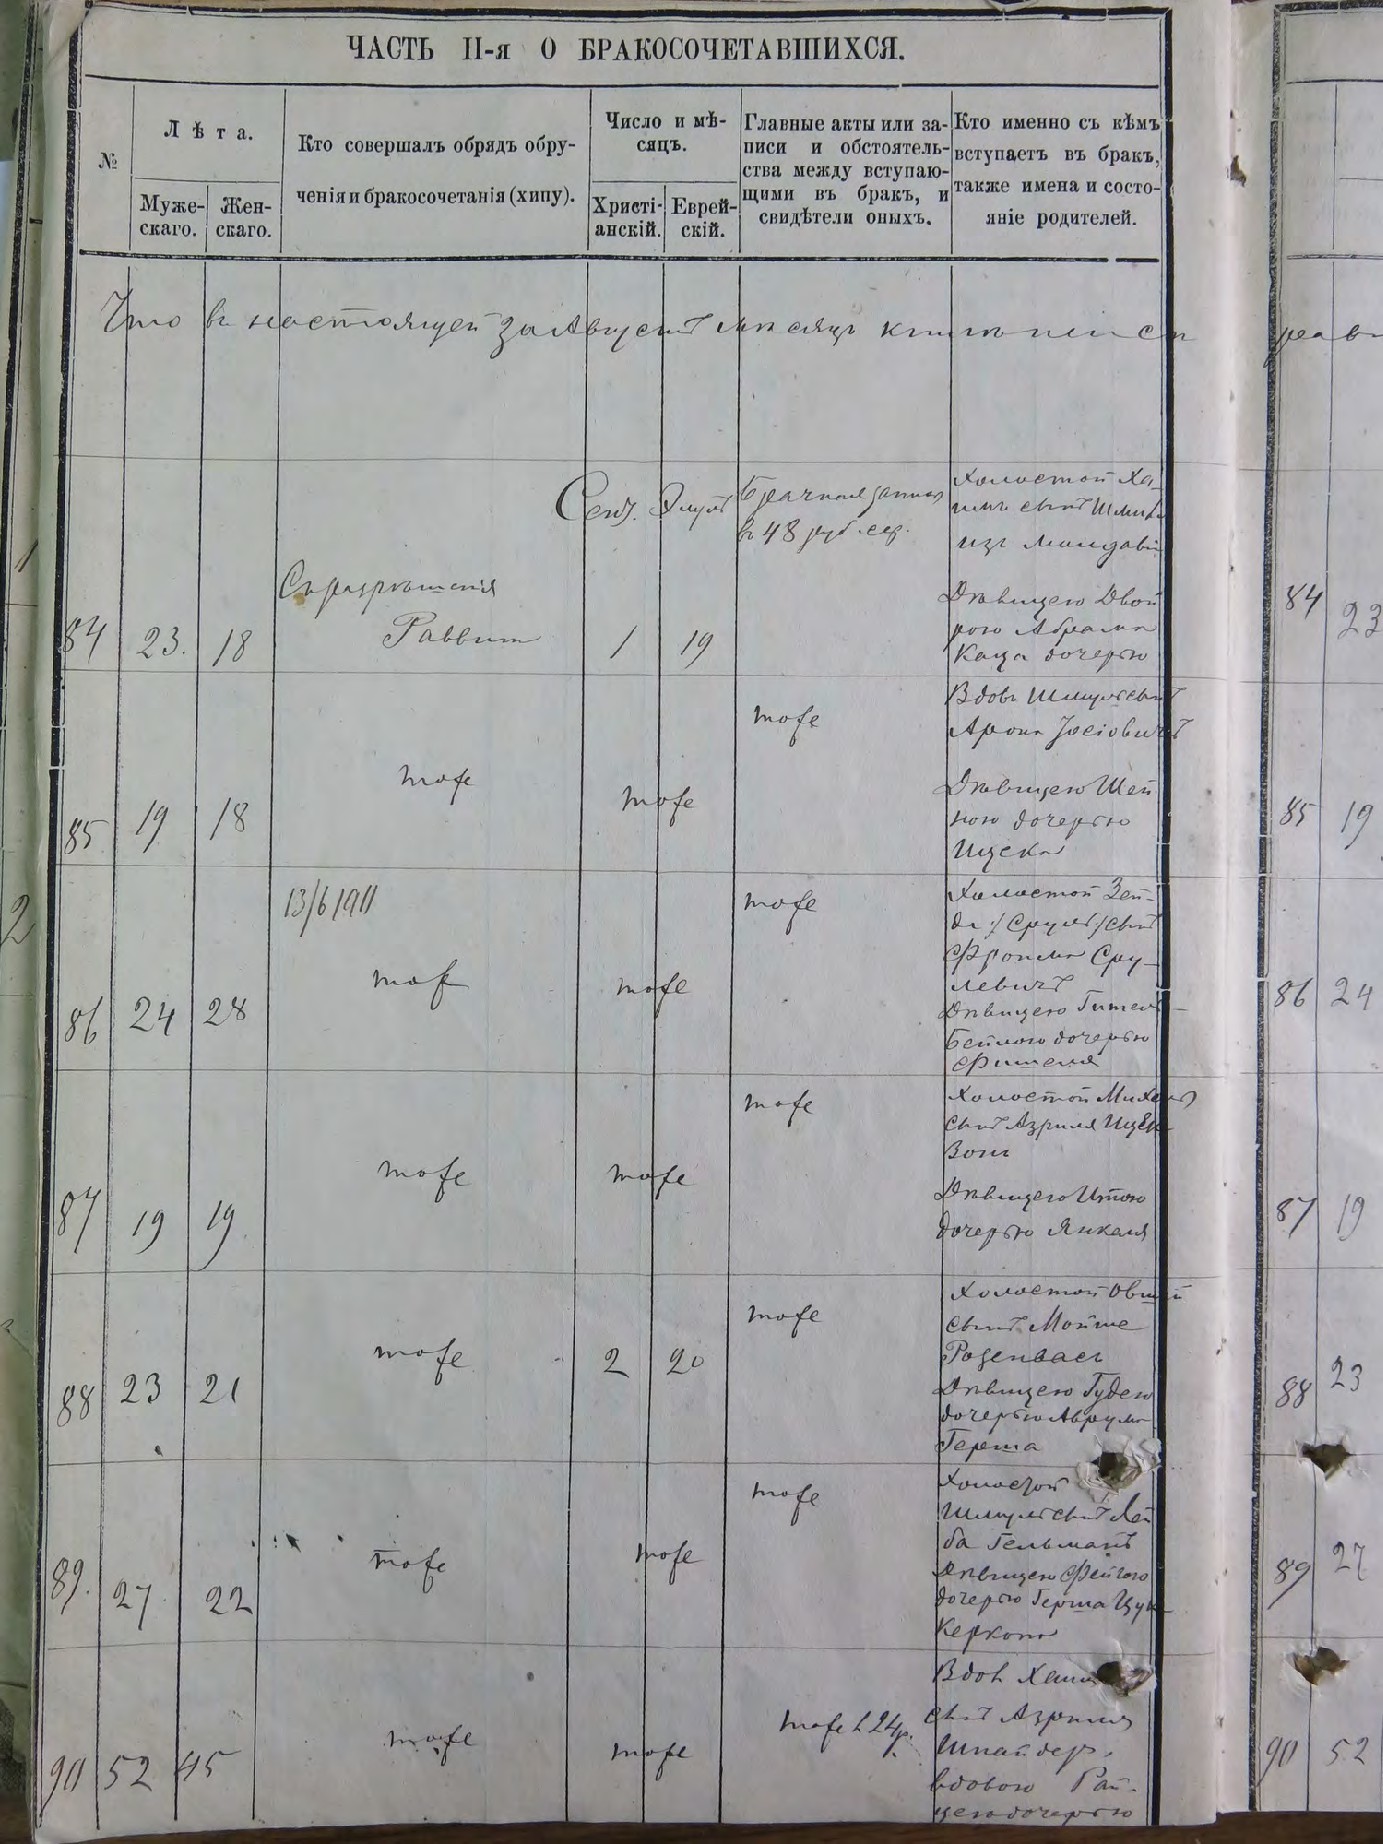 ЧАСТЬ II-я О БРАКОСОЧЕТАВШИХСЯ.
№
Лѣта.
Муже-
скаго.
Жен-
скаго.
Кто совершалъ обрядъ обру-
ченія и бракосочетанія (хипу).
Число и мѣ-
сяцъ.
Христі-
анскій.
Еврей-
скій.
Главные акты или за-
писи и обстоятель-
ства между вступаю-
щими въ бракъ, и
свидѣтели оныхъ.
Кто именно съ кѣмъ
вступаетъ въ бракъ,
также имена и состо-
яніе родителей.
Что въ настоящей за Августъ мѣсяцъ
84
23.
18
Съ разрѣшенія
Раввина
Сент.
Элулъ
1
19
Брачная запись
въ 48 руб. сер.
Холостой Ха-
имъ сынъ Шмиля
изъ
Дѣвицею Двой
рою Абрама
Каца дочерью
85
19
18
тоже
тоже
тоже
Вдовъ Шмуль сынъ
Арона Іосіовичъ
Дѣвицею Шей
ною дочерью
Ицека
13/6 1911
86
24
28
тож
тоже
тоже
Холостой Зей-
да /Сруль/ сынъ
Фроима Сру-
левичъ
Дѣвицею Гитель-
Бейлою дочерью
Фишеля
87
19
19
тоже
тоже
тоже
Холостой Михель
сынъ Азриля Ицек-
зонъ
Дѣвицею Итою
дочерью Янкеля
88
23
21
тоже
2
20
тоже
Холостой Овшій
сынъ Мойше
Розенвасъ
Дѣвицею Гудею
дочерью Аврума
Герша
89.
27
22
тоже
тоже
тоже
Холостой
Шмуль сынъ Лей
ба Гельманъ
Дѣвицею Фейгою
дочерью Герша Цук-
кермана
90
52
45
тоже
тоже
тоже в 24р.
Вдов
сынъ Азриля
Шнайдер.
вдовою Рай-
цею дочерью
84
23
85
19
86
24
87
19
88
23
89
27
90
52